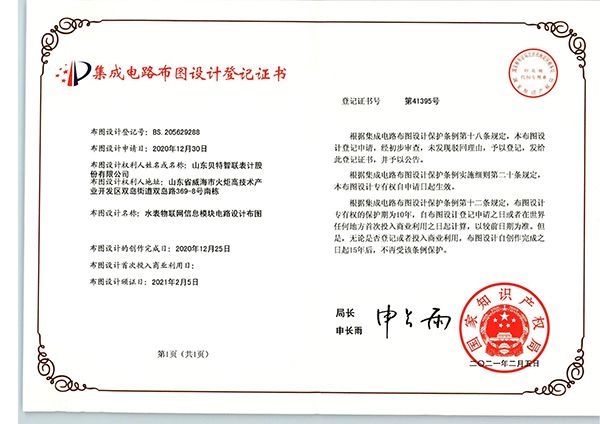 集成电路布图设计登记证书
布图设计登记号：BS.205629288
布图设计申请日：2020年12月30日
布图设计权利人姓名或名称：山东贝特智联表计股
份有限公司
布图设计权利人地址：山东省威海市火炬高技术产
业开发区双岛街道双岛路369-8号南栋
布图设计名称：水表物联网信息模块电路设计布图
布图设计的创作完成日：2020年12月25日
布图设计首次投入商业利用日：
布图设计颁证日：2021年2月5日
第1页（共1页）
登记证书号 第41395号
根据集成电路布图设计保护条例第十八条规定，本布图设
计登记申请，经初步审查，未发现驳回理由，予以登记，发给
此登记证书，并予以公告。
根据集成电路布图设计保护条例实施细则第二十条规定，
本布图设计专有权自申请日起生效。
根据集成电路布图设计保护条例第十二条规定，布图设计
专有权的保护期为10年，自布图设计登记申请之日或者在世界
任何地方首次投入商业利用之日起计算，以较前日期为准。但
是，无论是否登记或者投入商业利用，布图设计自创作完成之
日起15年后，不再受该条例保护。
局长
申长雨
申长雨
国家知识产权局
二〇二一年二月五日